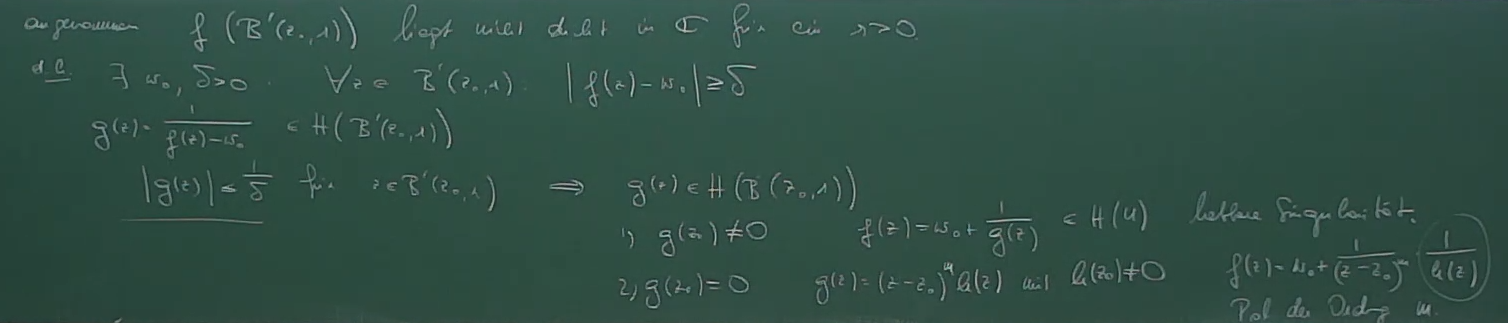 angenommen f(B'(z₀,r)) liegt nicht dicht in ℂ für ein r>0.
d.h. ∃ w₀, δ>0. ∀z∈ B'(z₀,r). |f(z)-w₀|≥δ
g(z)= 1/(f(z)-w₀) ∈ H(B'(z₀,r))
|g(z)| ≤ 1/δ für z∈B'(z₀,r) ⟹ g(z)∈H(B(z₀,r))
1) g(z₀)≠0 f(z)=w₀+ 1/g(z) ∈ H(U) hebbare Singularität.
2) g(z₀)=0 g(z)=(z-z₀)ᵐh(z) mit h(z₀)≠0 f(z)=w₀+ 1/(z-z₀)ᵐ · 1/h(z)
Pol der Ordng m.